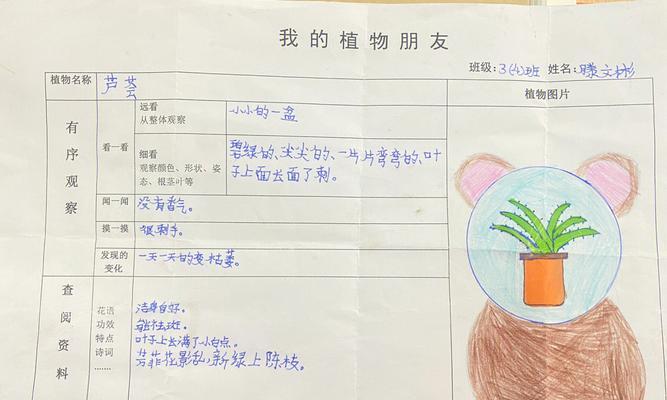 我的植物朋友
班级：3(4)班 姓名：滕文彬
植物名称 芦荟 植物图片
有序观察
看一看
远看
从整体观察
小小的一盆
细看
观察颜色、形状、姿
态、根茎叶等
碧绿的、尖尖的、一片片弯弯的、叶
子上面长面了刺。
闻一闻 没有香气。
摸一摸 很刺手。
发现的
变化
一天一天的变枯萎。
查阅资料
花语 洁身自好。
功效 能祛斑。
特点 叶子上长满了小白点。
诗词 芳菲花影乱，新绿上陈枝。
……